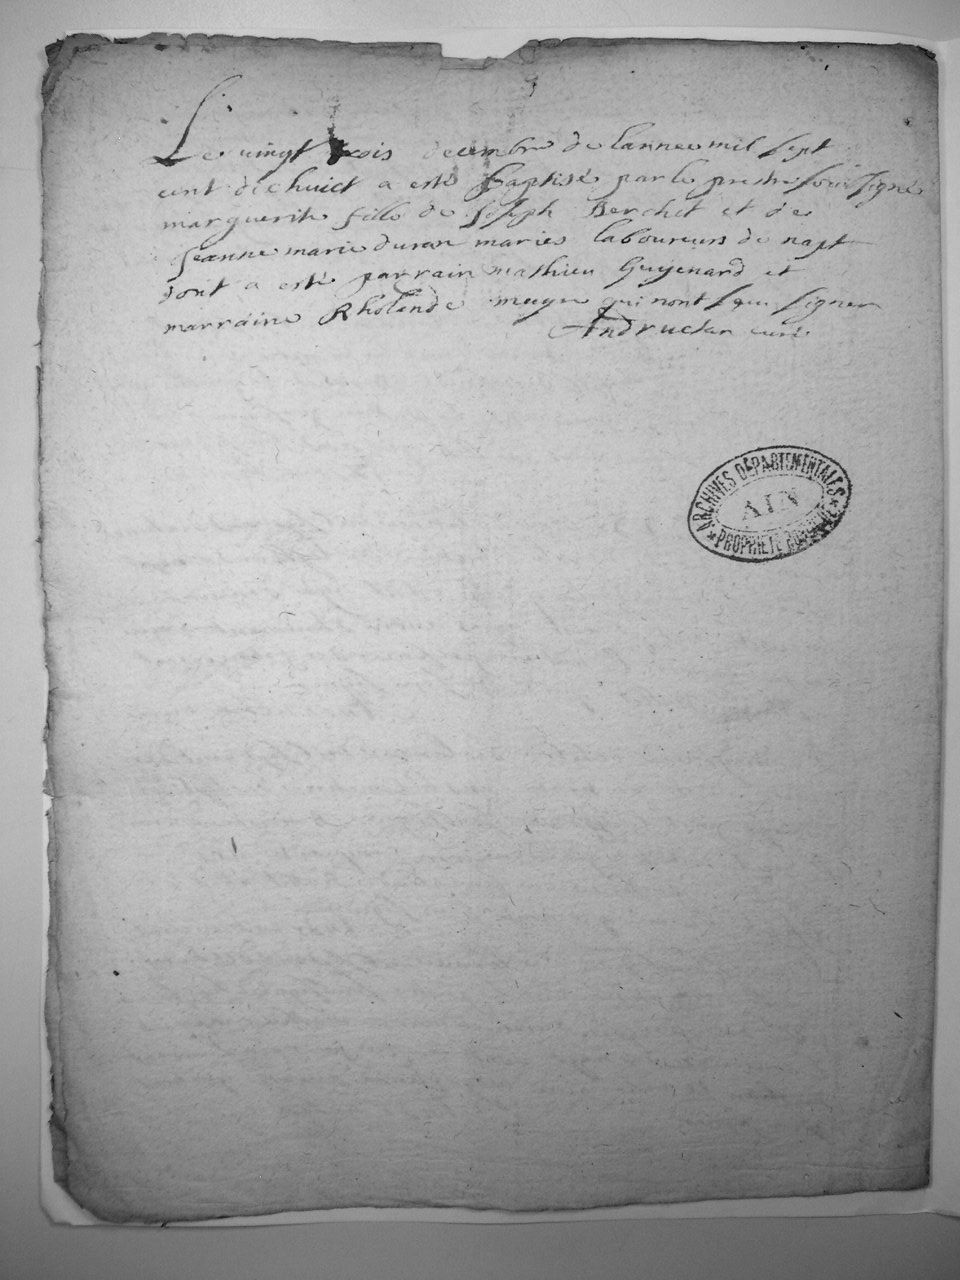 Le vingt trois decembre de lannee mil sept
cent dichuict a esté Baptisé par le prestre sousigné
marguerite fille de Joseph Berchet et de
Jeanne marie duran mariés laboureurs de napt
dont a esté parrain mathieu Guyenard et
marraine Rholende qui nont sçeu signer
curé
ARCHIVES DÉPARTEMENTALES
AIN
PROPRIÉTÉ PUBLIQUE